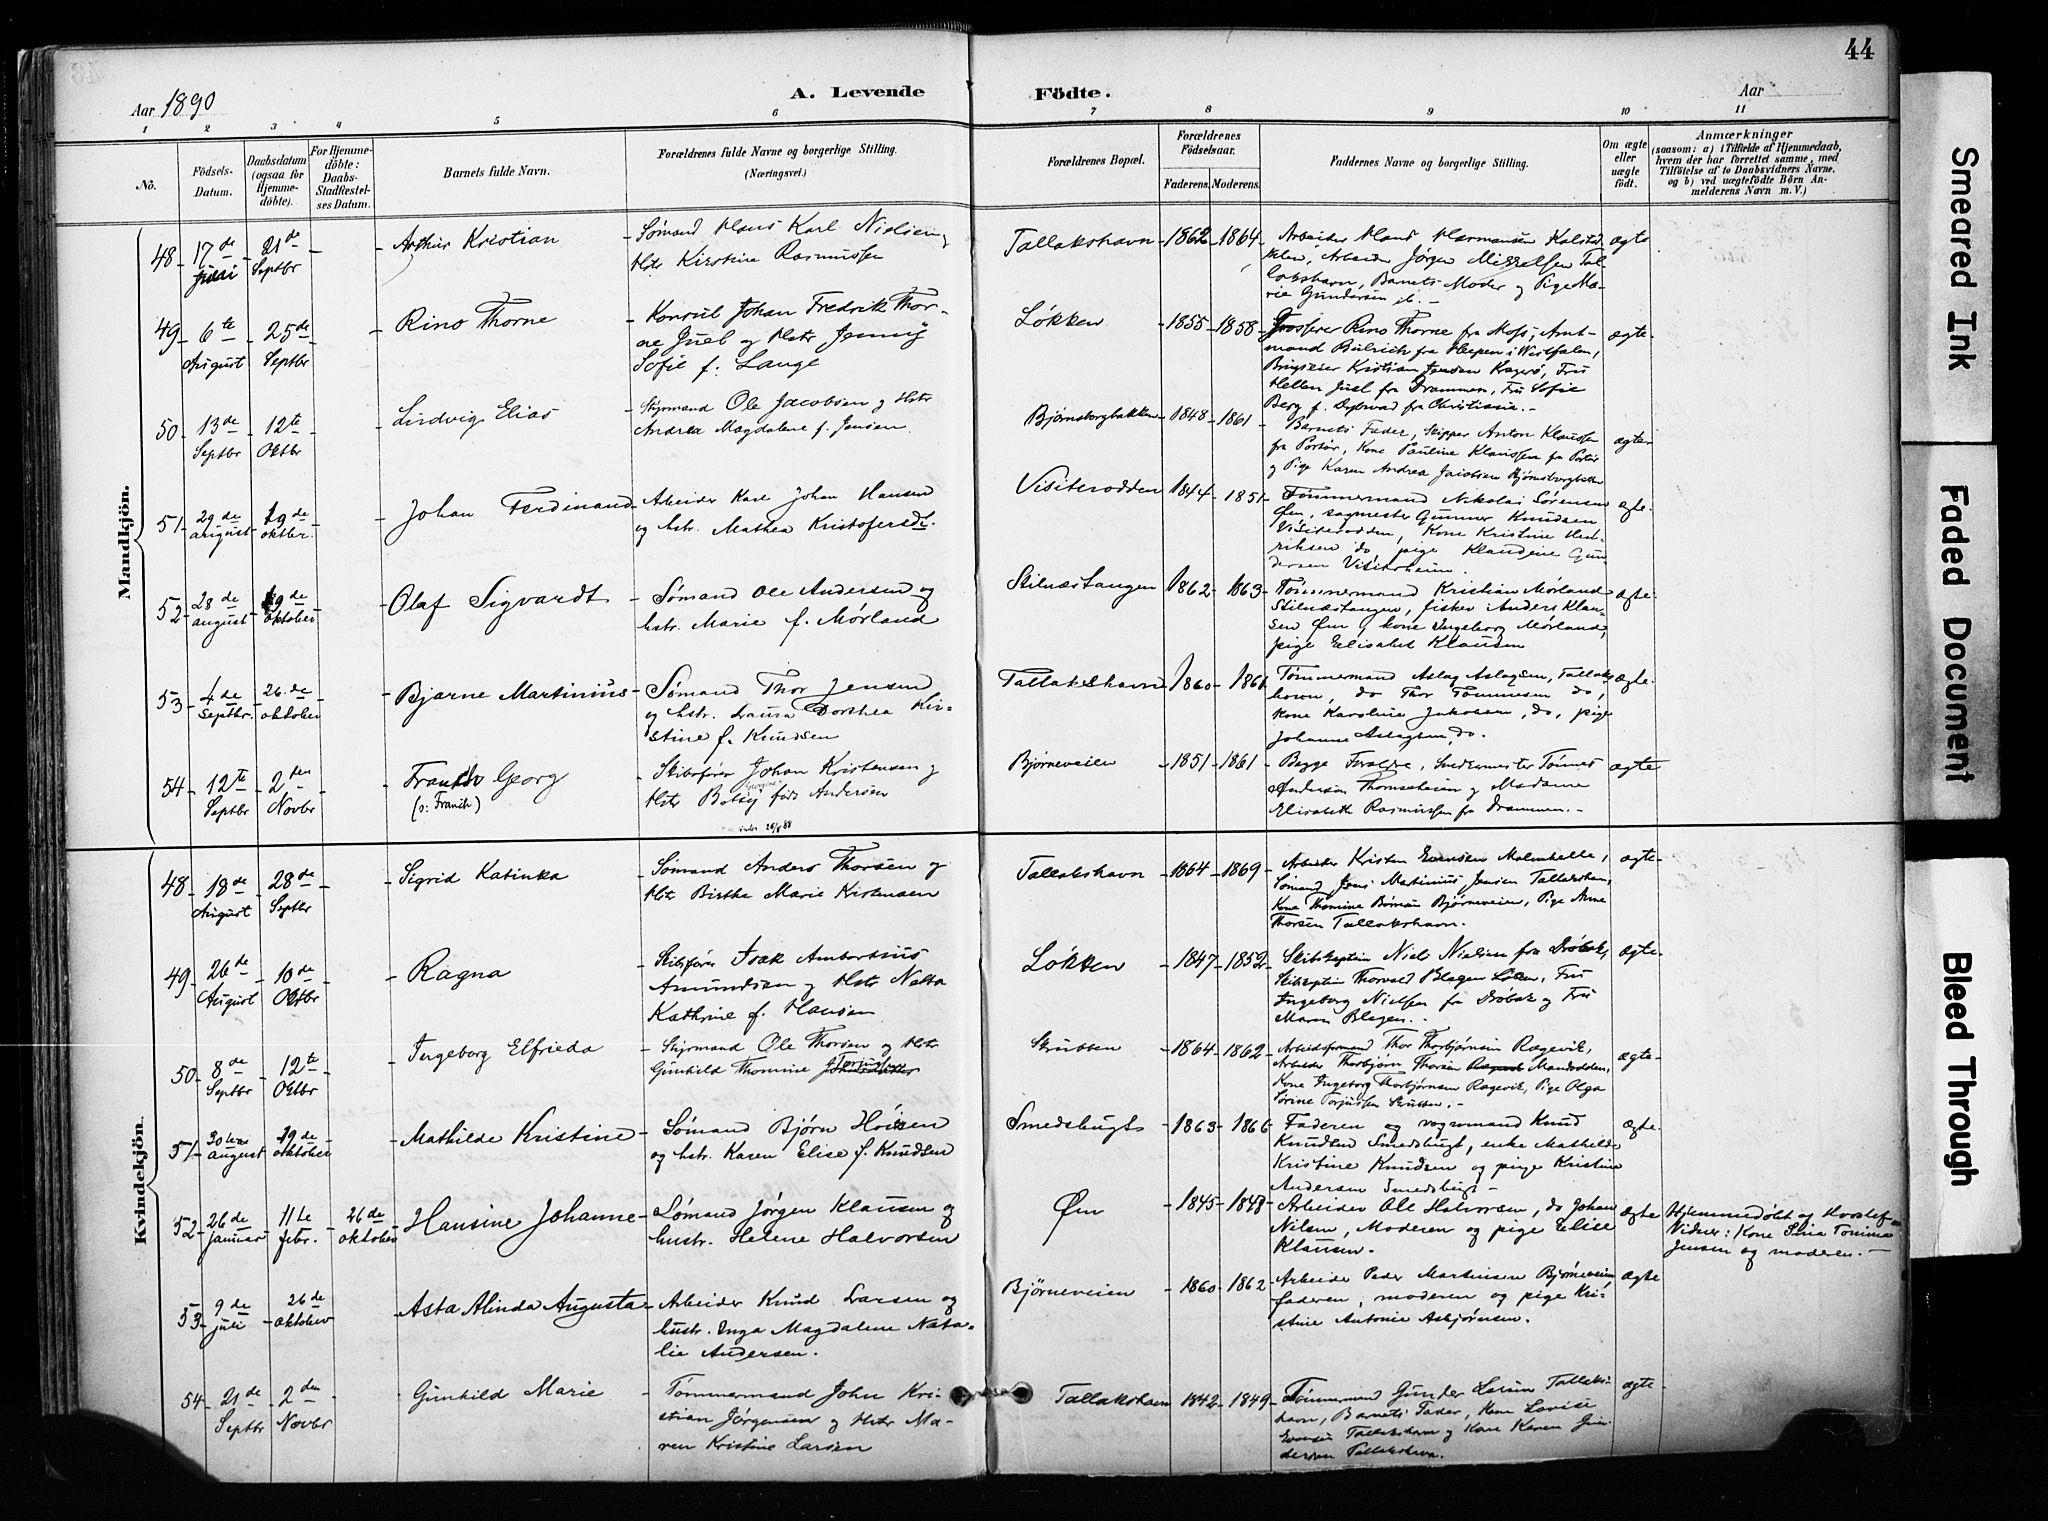 44
Aar 1890
A. Levende Födte.
Aar
1 2 3 4 5 6 7 8 9 10 11
No.
Födsels-Datum.
Daabsdatum (ogsaa for Hjemme-döbte).
For Hjemme-döbte: Daabs-Stadfæstel-ses Datum.
Barnets fulde Navn.
Forældrenes fulde Navne og borgerlige Stilling.
(Næringsvei.)
Forældrenes Bopæl.
Forældrenes Födselsaar.
Faderens. Moderens.
Faddernes Navne og borgerlige Stilling.
Om ægte eller uægte födt.
Anmærkninger
(saasom: a) i Tilfælde af Hjemmedaab, hvem der har forrettet samme, med Tilföielse af to Daabsvidners Navne. og b) ved uægtefödte Börn An-melderens Navn m. V.)
Mandkjön.
48 17de juli 21de Septbr Arthur Kristian Sømand Hans Karl Nielsen og Hstr Kirstine Rasmussen Tallakshavn 1862 1864 Arbeider Hans Hermansen Kalstad-kilen, Arbeider Jørgen Mikkelsen Tal-lakshavn, Barnets Moder og Pige Ma-rie Gundersen ib. ægte
49 6te August 25de Septbr Rino Thorne Konsul Johan Fredrik Thor-ne Juel og Hstr Jenny Sofie f. Lange Løkken 1855 1858 Grosserer Rino Thorne fra Moss, Amt-mand Bülrich fra Heepen i Westfalen, Brugseier Kristian Jensen Kragerø, Fru Hellen Juel fra Drammen, Fru Sofie Berg f. Dybwad fra Christiania. ægte
50 13de Septbr 12te Oktbr Ludvig Elias Styrmand Ole Jacobsen og Hstr Andrea Magdalene f. Jensen Bjørnsborgbakken 1848 1861 Barnets Fader, Skipper Anton Klaussen fra Portør, Kone Pauline Klaussen fra Portør og Pige Karen Andrea Jacobsen Bjørnsborgbakken ægte
51 29de august 19de oktbr. Johan Ferdinand Arbeider Karl Johan Hansen og hstr. Mathea Kristofersdt. Visiterodden 1844 1851 Tømmermand Nikolai Sørensen Øen, sagmester Gunner Knudsen Visiterodden, Kone Kristine Hen-riksen do pige Klaudine Gun-dersen Visiterheim. ægte
52 28de august 19de oktober Olaf Sigvardt Sømand Ole Andersen og hstr. Marie f. Mørland Stilnæstangen 1862 1863 Tømmermand Kristian Mørland Stilnæstangen, fisker Anders Klau-sen Øen, kone Ingeborg Mørland, pige Elisabet Klausen ægte
53 4de Septbr. 26.de oktober Bjarne Martinius Sømand Thor Jensen og hstr. Laura Dorthea Kir-stine f. Knudsen Tallakshavn 1860 1861 Tømmermand Aslag Aslagsen, Tallaks-havn, do Thor Tommesen do, kone Karoline Jakobsen, do, pige Johanne Aslagsen, do. ægte
54 12te Septbr 2den Novbr Georg (o: Franck) Skibsfører Johan Kristensen og Hstr Betty født Andersen Bjørneveien 1851 1861 Begge Forældre, Smedemester Tønnes Andersen Thomseheien og Madame Elisabeth Rasmussen fra Drammen. ægte
Kvindekjön.
48 18de August 28de Septbr Sigrid Katinka Sømand Anders Thorsen og Hstr Birthe Marie Kristensen Tallakshavn 1864 1869 Arbeider Kristen Evensen Malmhella, Sømand Jens Martinius Jensen Tallakshavn, Kone Thomine Børresen Bjørneveien, Pige Anne Thorsen Tallakshavn. ægte
49 26de August 10de Oktbr Ragna Skibsfører Isak Ambrosius Amundsen og Hstr Nalta Kathrine f. Hansen Løkken 1847 1852 Skibskaptein Niels Nielsen fra Drøbak, Skibskaptein Thorvald Blegen Løkken, Fru Ingeborg Nielsen fra Drøbak og Fru Maren Blegen. ægte
50 8de Septbr 12te Oktbr Ingeborg Elfrieda Styrmand Ole Thorsen og Hstr Gunhild Thomine Skrubben 1864 1862 Arbeidsformand Thor Thorbjørnsen Ragevik, Arbeider Thorbjørn Thorsen Manrodden, Kone Ingeborg Thorbjørnsen Ragevik, Pige Olga Sørine Torjussen Skrubben. ægte
51 30te august 19de oktober Mathilde Kristine Sømand Bjørn Høisen og hstr. Karen Elise f. Knudsen Smedsbugt 1863 1866 Faderen og vognmand Knud Knudsen Smedsbugt, enke Mathilde Kristine Knudsen og pige Kristine Andersen Smedsbugt ægte
52 26de januar 11te febr. 26de oktober Hansine Johanne Sømand Jørgen Klausen og hustr. Helene Halvorsen Øen 1845 1848 Arbeider Ole Halvorsen, do Johan Nilsen, Moderen og pige Elise Klausen. ægte Hjemmedøbt af Vidner: Kone Sina Tomine Jensen og moderen.
53 9de juli 26de oktober Asta Alinda Augusta Arbeider Knud Larsen og hustr. Inga Magdalene Nata-lie Andersen. Bjørneveien 1860 1862 Arbeider Peder Martinsen Bjørneveien, faderen, moderen og pige Kri-stine Antonie Asbjørnsen. ægte
54 21de Septbr 2den Novbr Gunhild Marie Tømmermand John Kri-stian Jørgensen og Hstr Ma-ren Kristine Larsen Tallakshavn 1842 1849 Tømmermand Gunder Larsen Tallaks-havn, Barnets Fader, Kone Lovise Evensen Tallakshavn og Kone Karen Gun-dersen Tallakshavn. ægte
Smeared Ink
Faded Document
Bleed Through